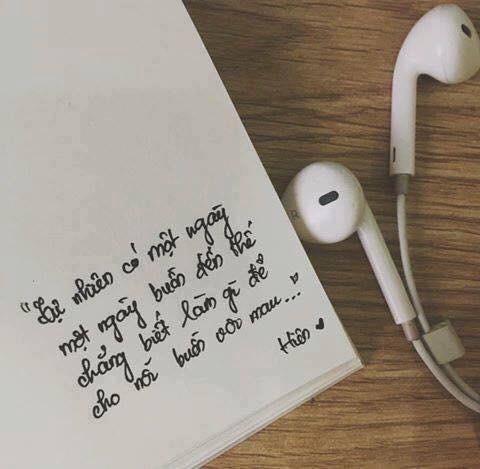 "Tự nhiên có một ngày
một ngày buồn đến thế
chẳng biết làm gì để
cho nỗi buồn vơi mau..."
Hiên ♥
R